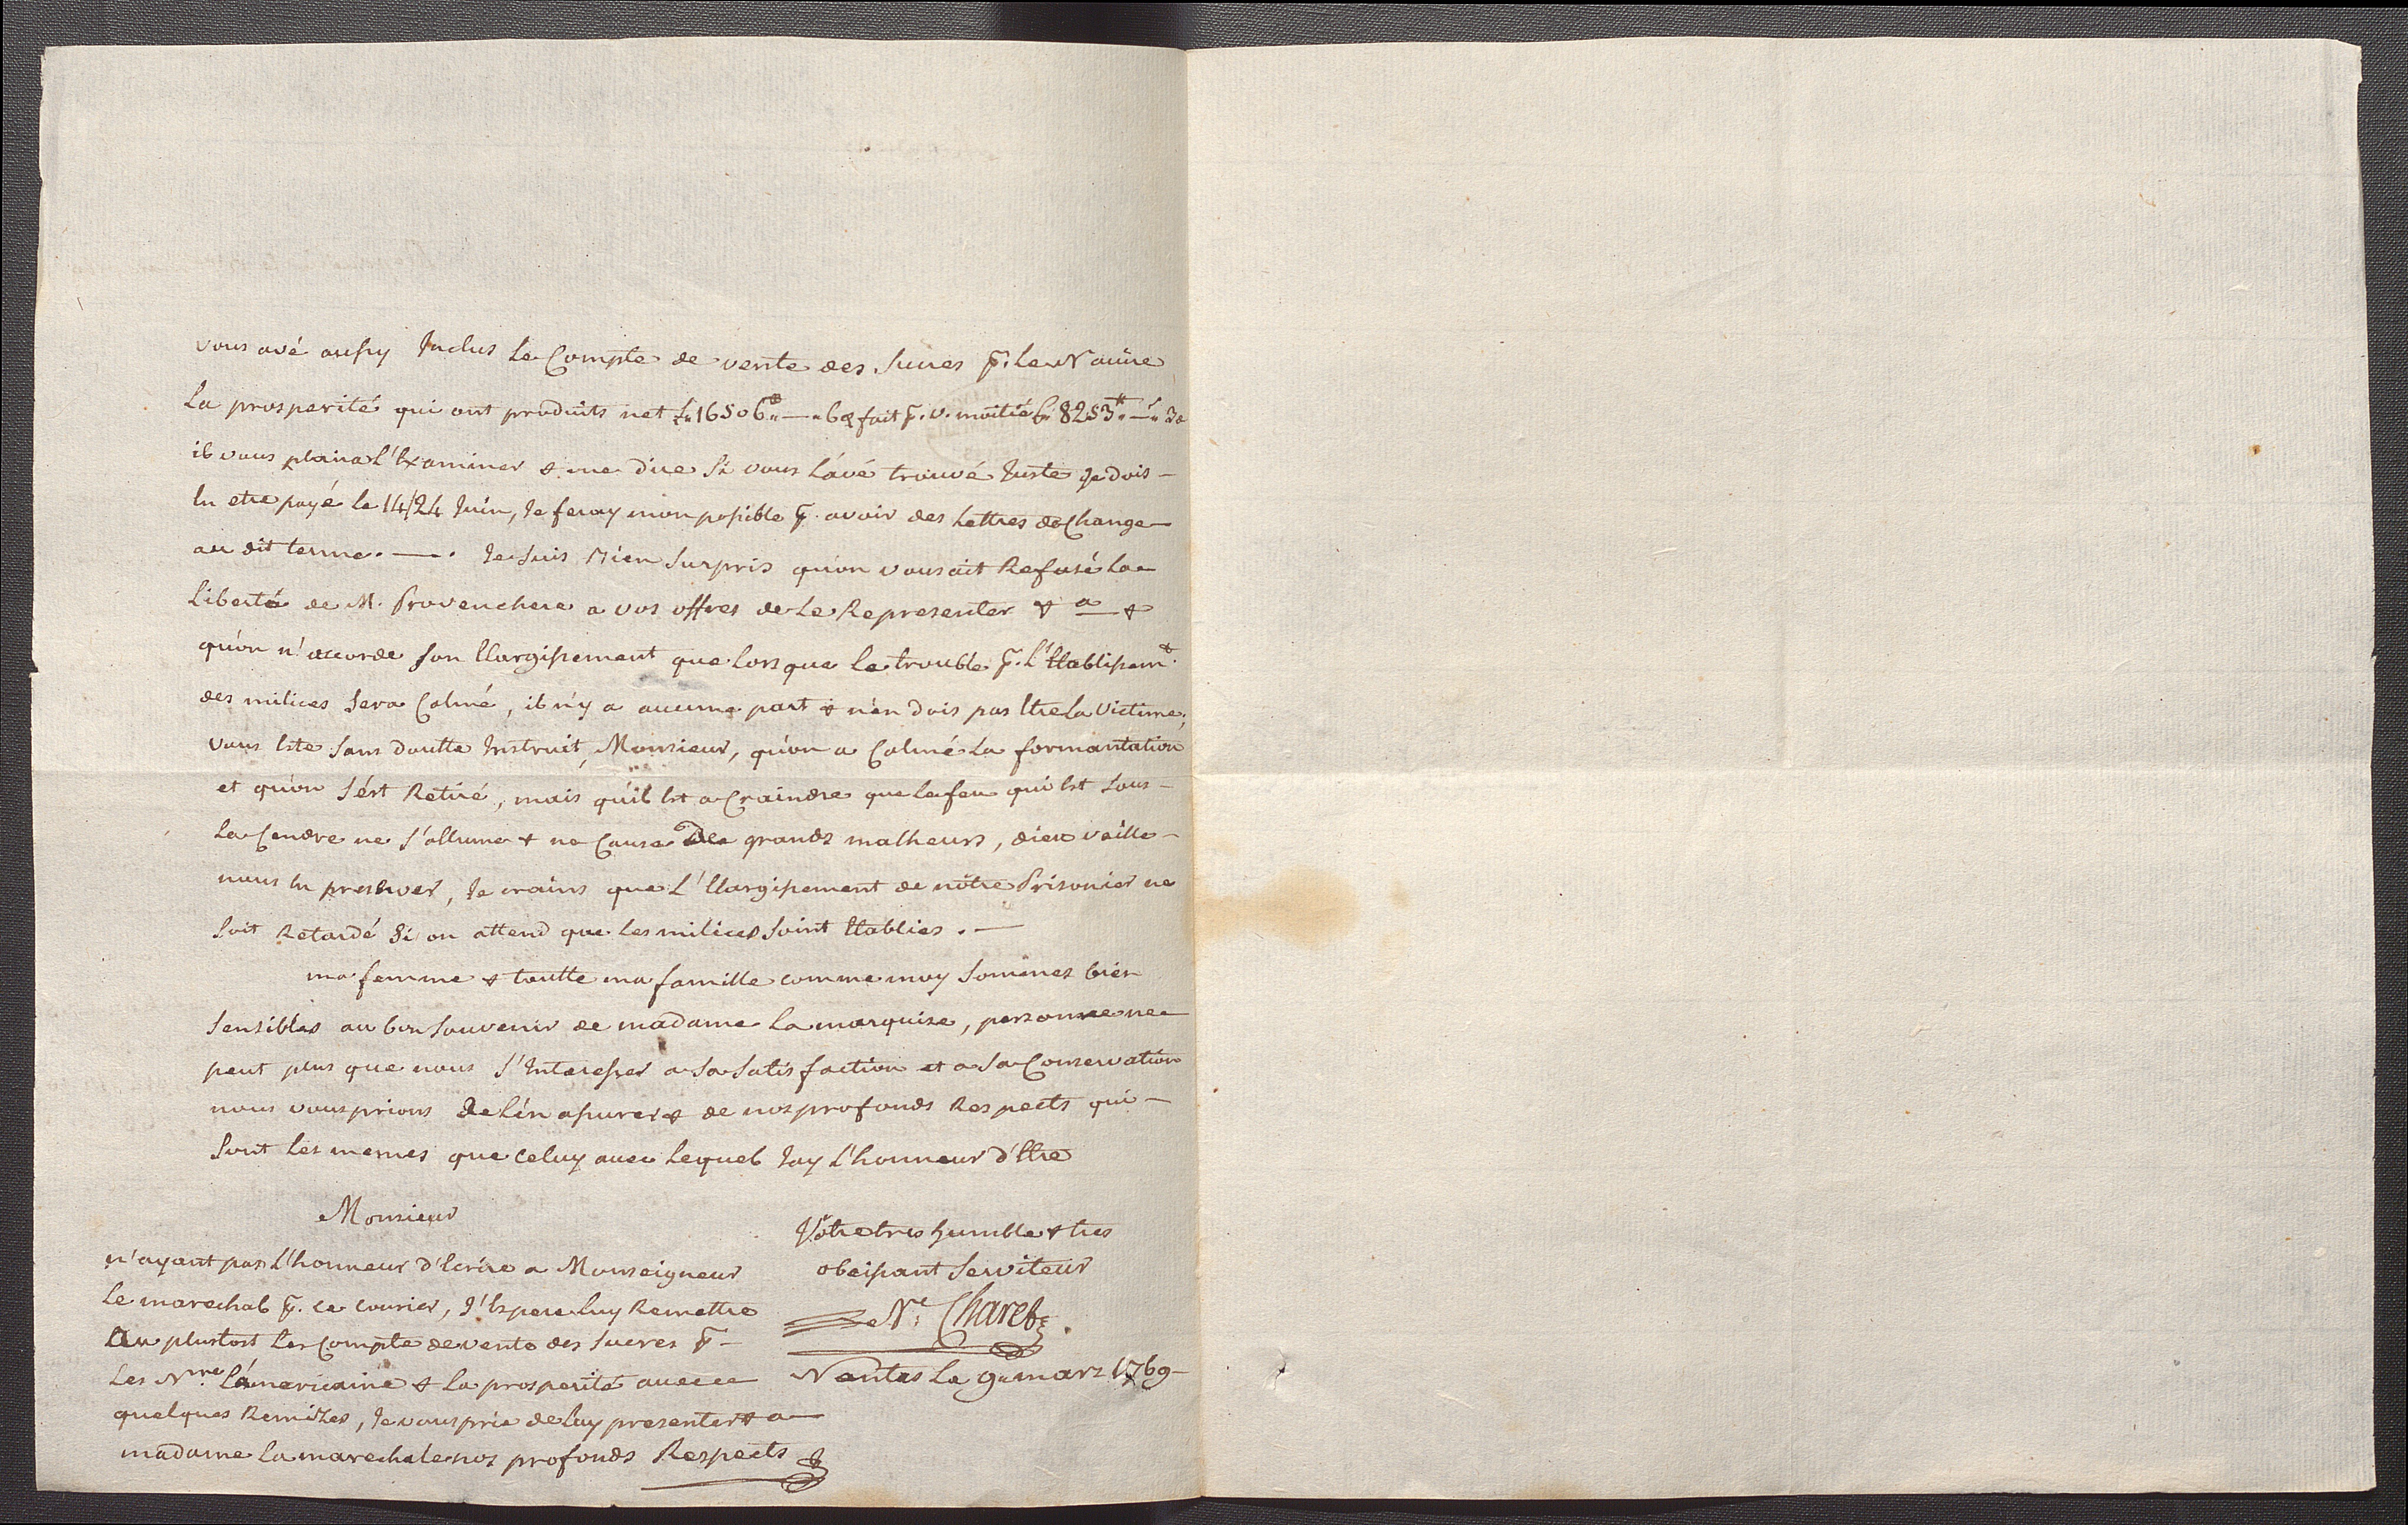 vous avé aussy Inclus Le Compte de vente des Sucres p.r Le Navire
La prosperité qui ont produits net £. 16506.tt — . 6 d fait p.r v. moitié £. 8253.tt — s. 3 d
il vous plaira L'Examiner & me dire Si vous L'avé trouvé Juste Je dois -
En etre payé le 14/24 Juin, Je feray mon possible p.r avoir des Lettres de Change
au dit terme. — . Je Suis Bien Surpris qu'on vous ait Refusé La
Liberté de M. Provenchere a vos offres de Le Representer & a &
qu'on n'accorde Son Elargissement que Lors que Le trouble p.r L'Etablissem.t
des milices Sera Calmé, il n'y a aucune part & n'en dois pas Etre La Victime;
Vous Este Sans doutte Instruit, Monsieur, qu'on a Calmé La formantation
et qu'on S'ést Retiré, mais qu'il Est a Craindre que Le feu qui Est Sous -
La Cendre ne S'allume & ne Cause des grands malheurs, dieu veille -
nous En preserver, Je crains que L'Elargissement de nôtre Prisonier ne
Soit Retardé Si on attend que Les milices Soint Etablies. —
ma femme & toutte ma famille comme moy Sommes bien
Sensibles au bon Souvenir de madame La marquise, personne ne
peut plus que nous S'Interesser a Sa Satisfaction et a Sa Conservation
nous vous prions de L'én assurer & de nos profonds Respects qui -
Sont Les memes que Celuy avec Lequel Jay L'honneur d'Etre
Monsieur
Vôtre tres humble & tres
obeissant Serviteur
N.s Charet
Nantes Le 9. mars 1769 -
n'ayant pas L'honneur d'Ecrire a Monseigneur
Le marechal p.r ce courier, J'Espere Luy Remettre
Au plustost Les Compte de vente des Sucres p.r -
Les N.res L'américaine & La prosperité avec
quelques Remizes, Je vous prie de Luy presenter & a
madame La marechale nos profonds Respects